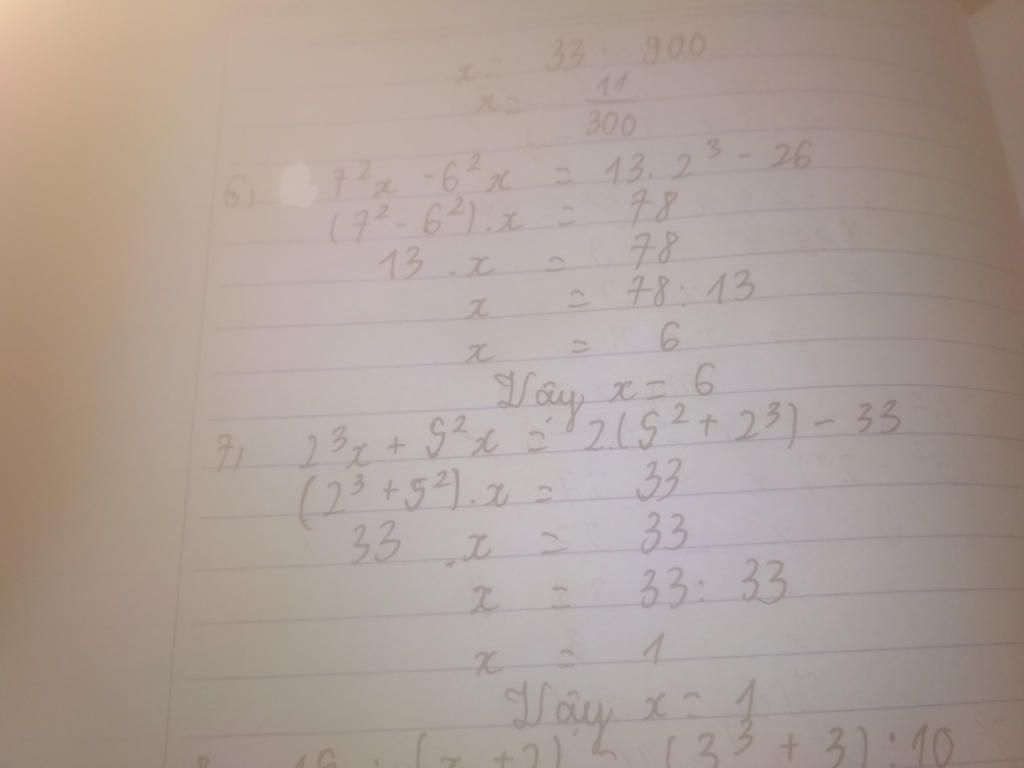 x = 33 : 900
x = 11/300
6, 7²x - 6²x = 13.2³ - 26
(7² - 6²).x = 78
13 .x = 78
x = 78 : 13
x = 6
Vậy x = 6
7, 2³x + 5²x = 2.(5² + 2³) - 33
(2³ + 5²).x = 33
33 .x = 33
x = 33 : 33
x = 1
Vậy x = 1
(x + 2) = (3³ + 3) : 10